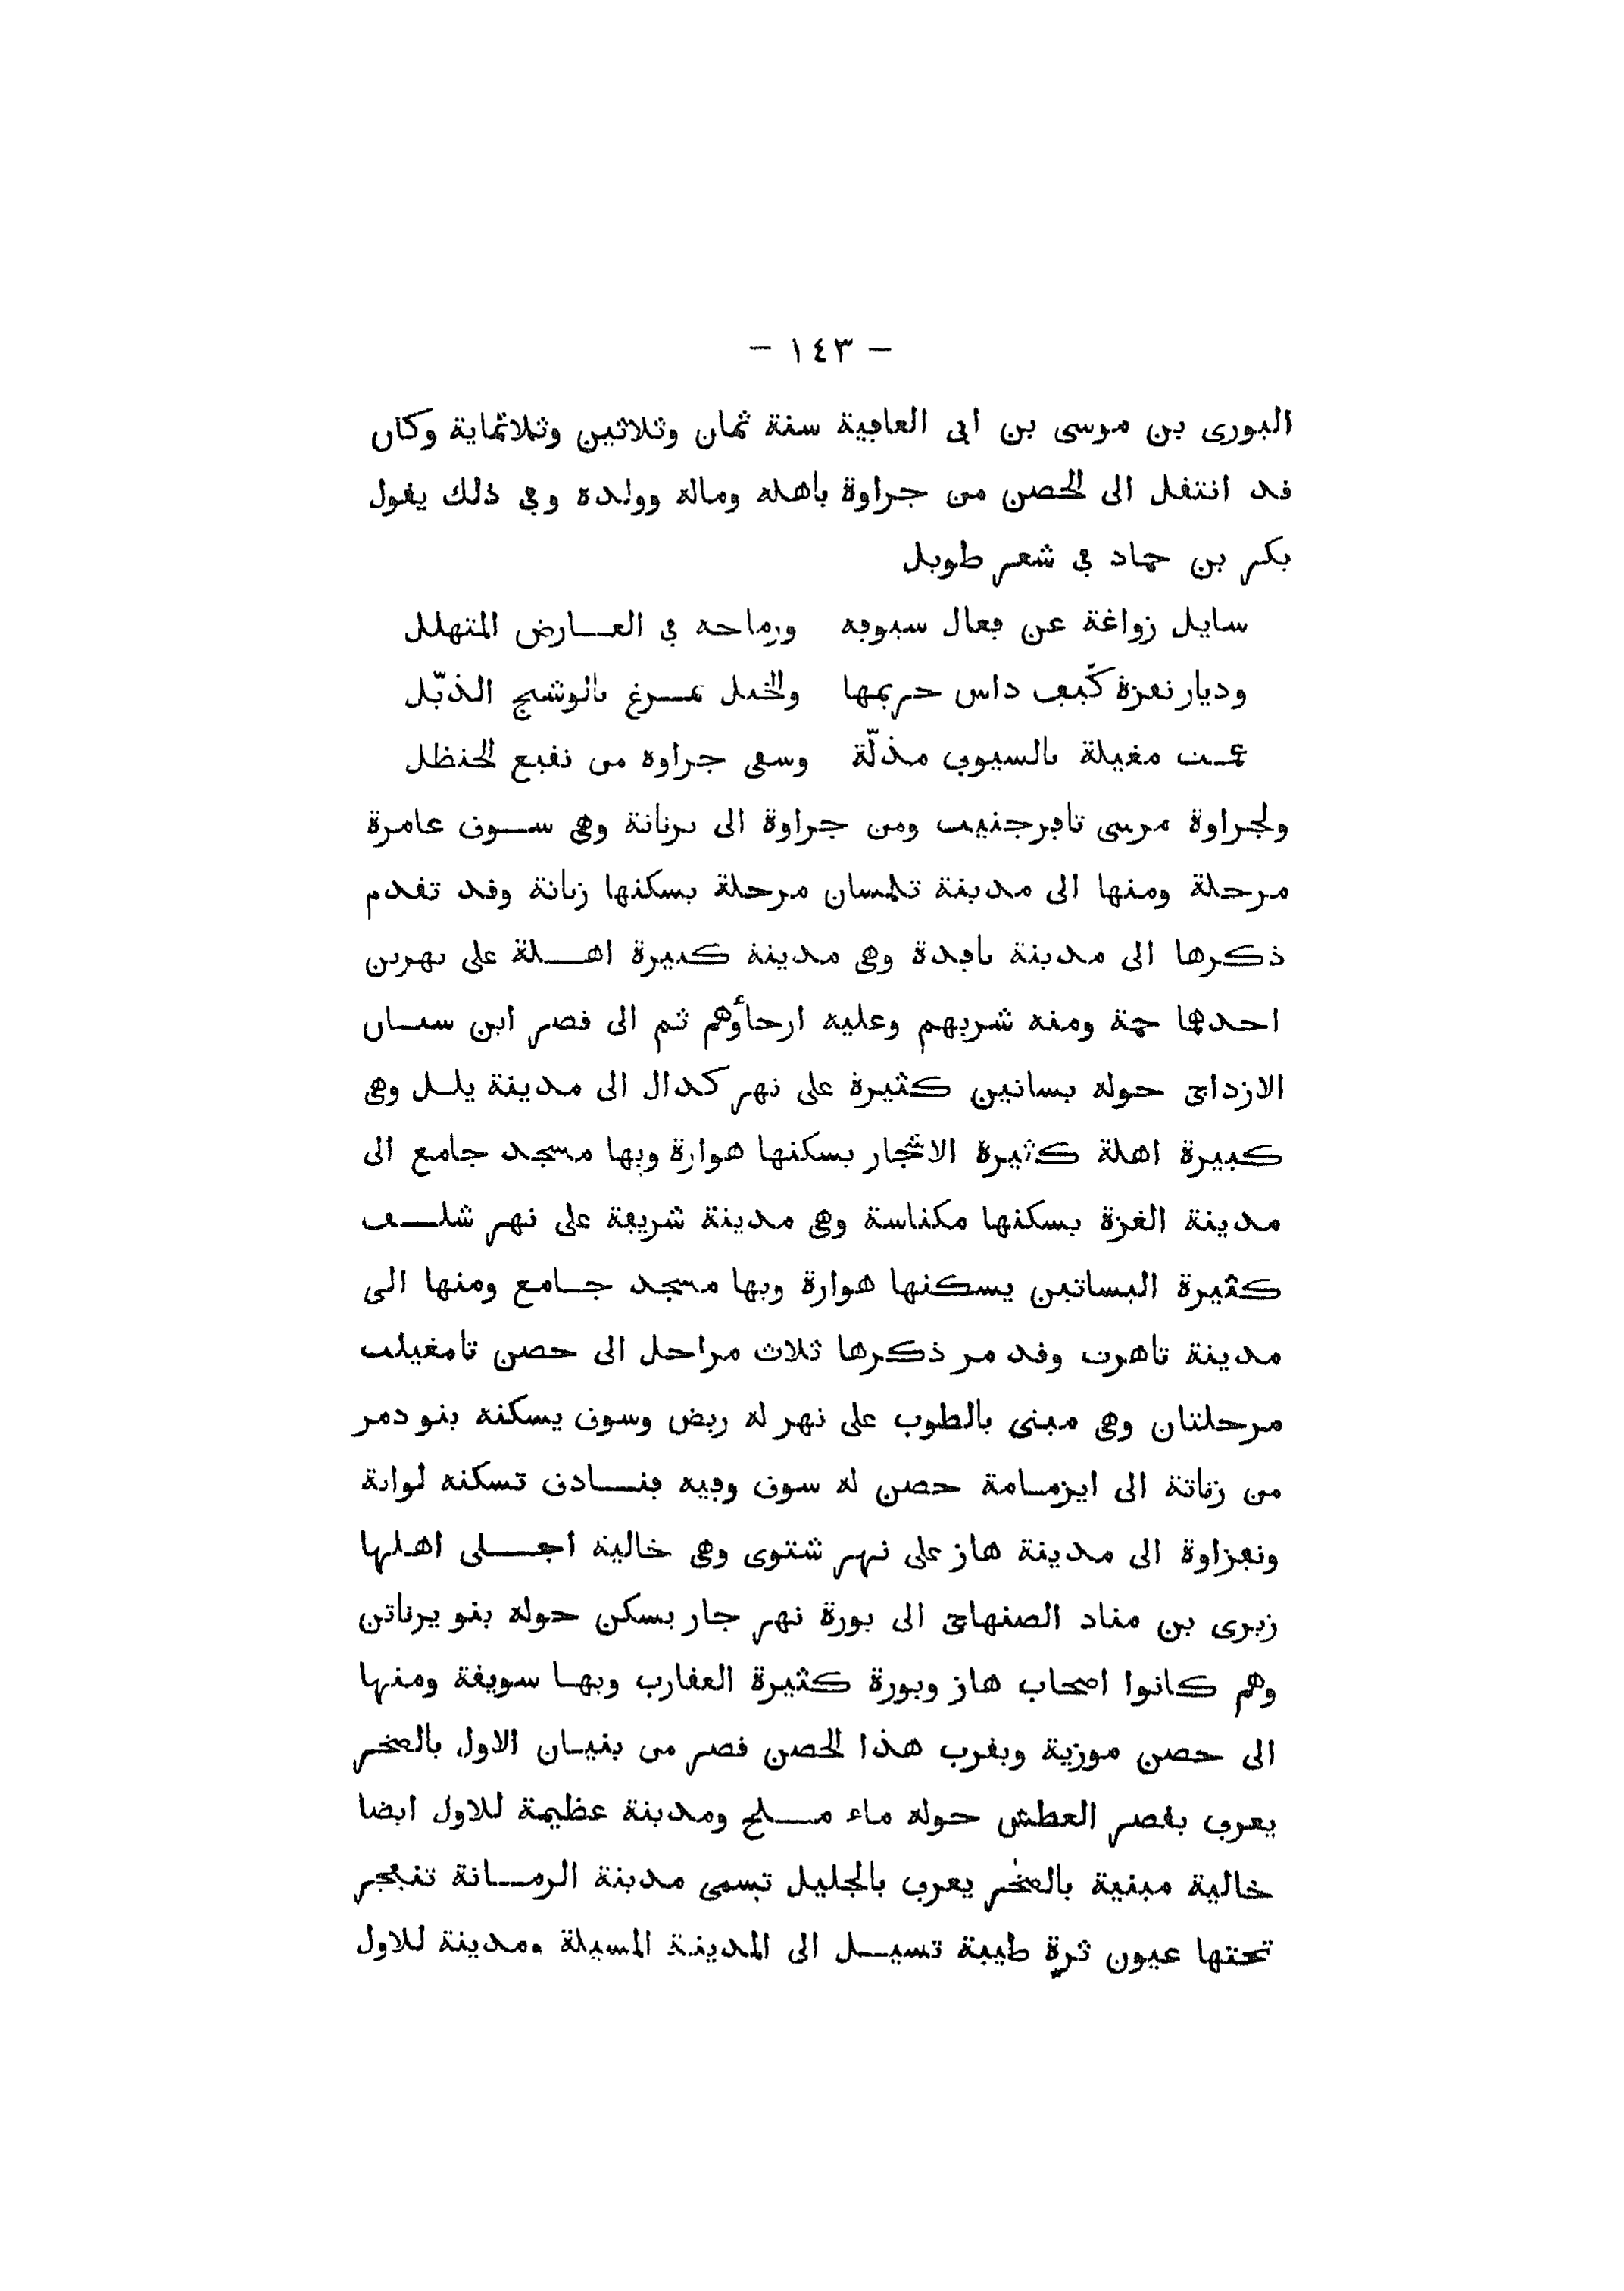 – ١٤٣ –
البورى بن موسى بن ابى العافية سنة ثمان وثلاثين وثلاثماية وكان
قد انتقل الى الحصن من جراوة باهله وماله وولده وفى ذلك يقول
بكر بن حماد فى شعر طويل
سايل زواغة عن فعال سيوفه ورماحه فى العـــارض المتهلل
وديار نفزة كّيف داس حريمها والخيل تمـــرغ بالوشيج الذبّل
عمّت مغيلة بالسيوف مذلّة وسقى جراوة من نقيع الحنظل
ولجراوة مرسى تافرجنيت ومن جراوة الى ترنانة وهى ســـوق عامرة
مرحلة ومنها الى مدينة تلمسان مرحلة يسكنها زناتة وقد تقدم
ذكرها الى مدينة تافدة وهى مدينة كبيرة اهـــلة على نهرين
احدهما حمة ومنه شربهم وعليه ارحاؤهم ثم الى قصر ابن سنـان
الازداجى حوله بساتين كثيرة على نهر كدال الى مدينة يلـل وهى
كبيرة اهلة كثيرة الاشجار يسكنها هوارة وبها مسجد جامع الى
مدينة الغزة يسكنها مكناسة وهى مدينة شريفة على نهر شلـــف
كثيرة البساتين يسكنها هوارة وبها مسجد جـامع ومنها الى
مدينة تاهرت وقد مر ذكرها ثلاث مراحل الى حصن تامغيلت
مرحلتان وهى مبنى بالطوب على نهر له ربض وسوق يسكنه بنو دمر
من زناتة الى ايزمـامة حصن له سوق وفيه فنـــادق تسكنه لواتة
ونفزاوة الى مدينة هاز على نهر شتوى وهى خالية اجـــلى اهلها
زيرى بن مناد الصنهاجى الى بورة نهر جار يسكن حوله بنو يرناتن
وهم كانوا اصحاب هاز وبورة كثيرة العقارب وبهـا سويقة ومنها
الى حصن موزية وبقرب هذا الحصن قصر من بنيـان الاول بالصخر
يعرف بقصر العطش حوله ماء مـــلح ومدينة عظيمة للاول ايضا
خالية مبنية بالصخر يعرف بالجليل تسمى مدينة الرمـــانة تنفجر
تحتها عيون ثرة طيبة تسيـــل الى المدينة المسيلة ومدينة للاول